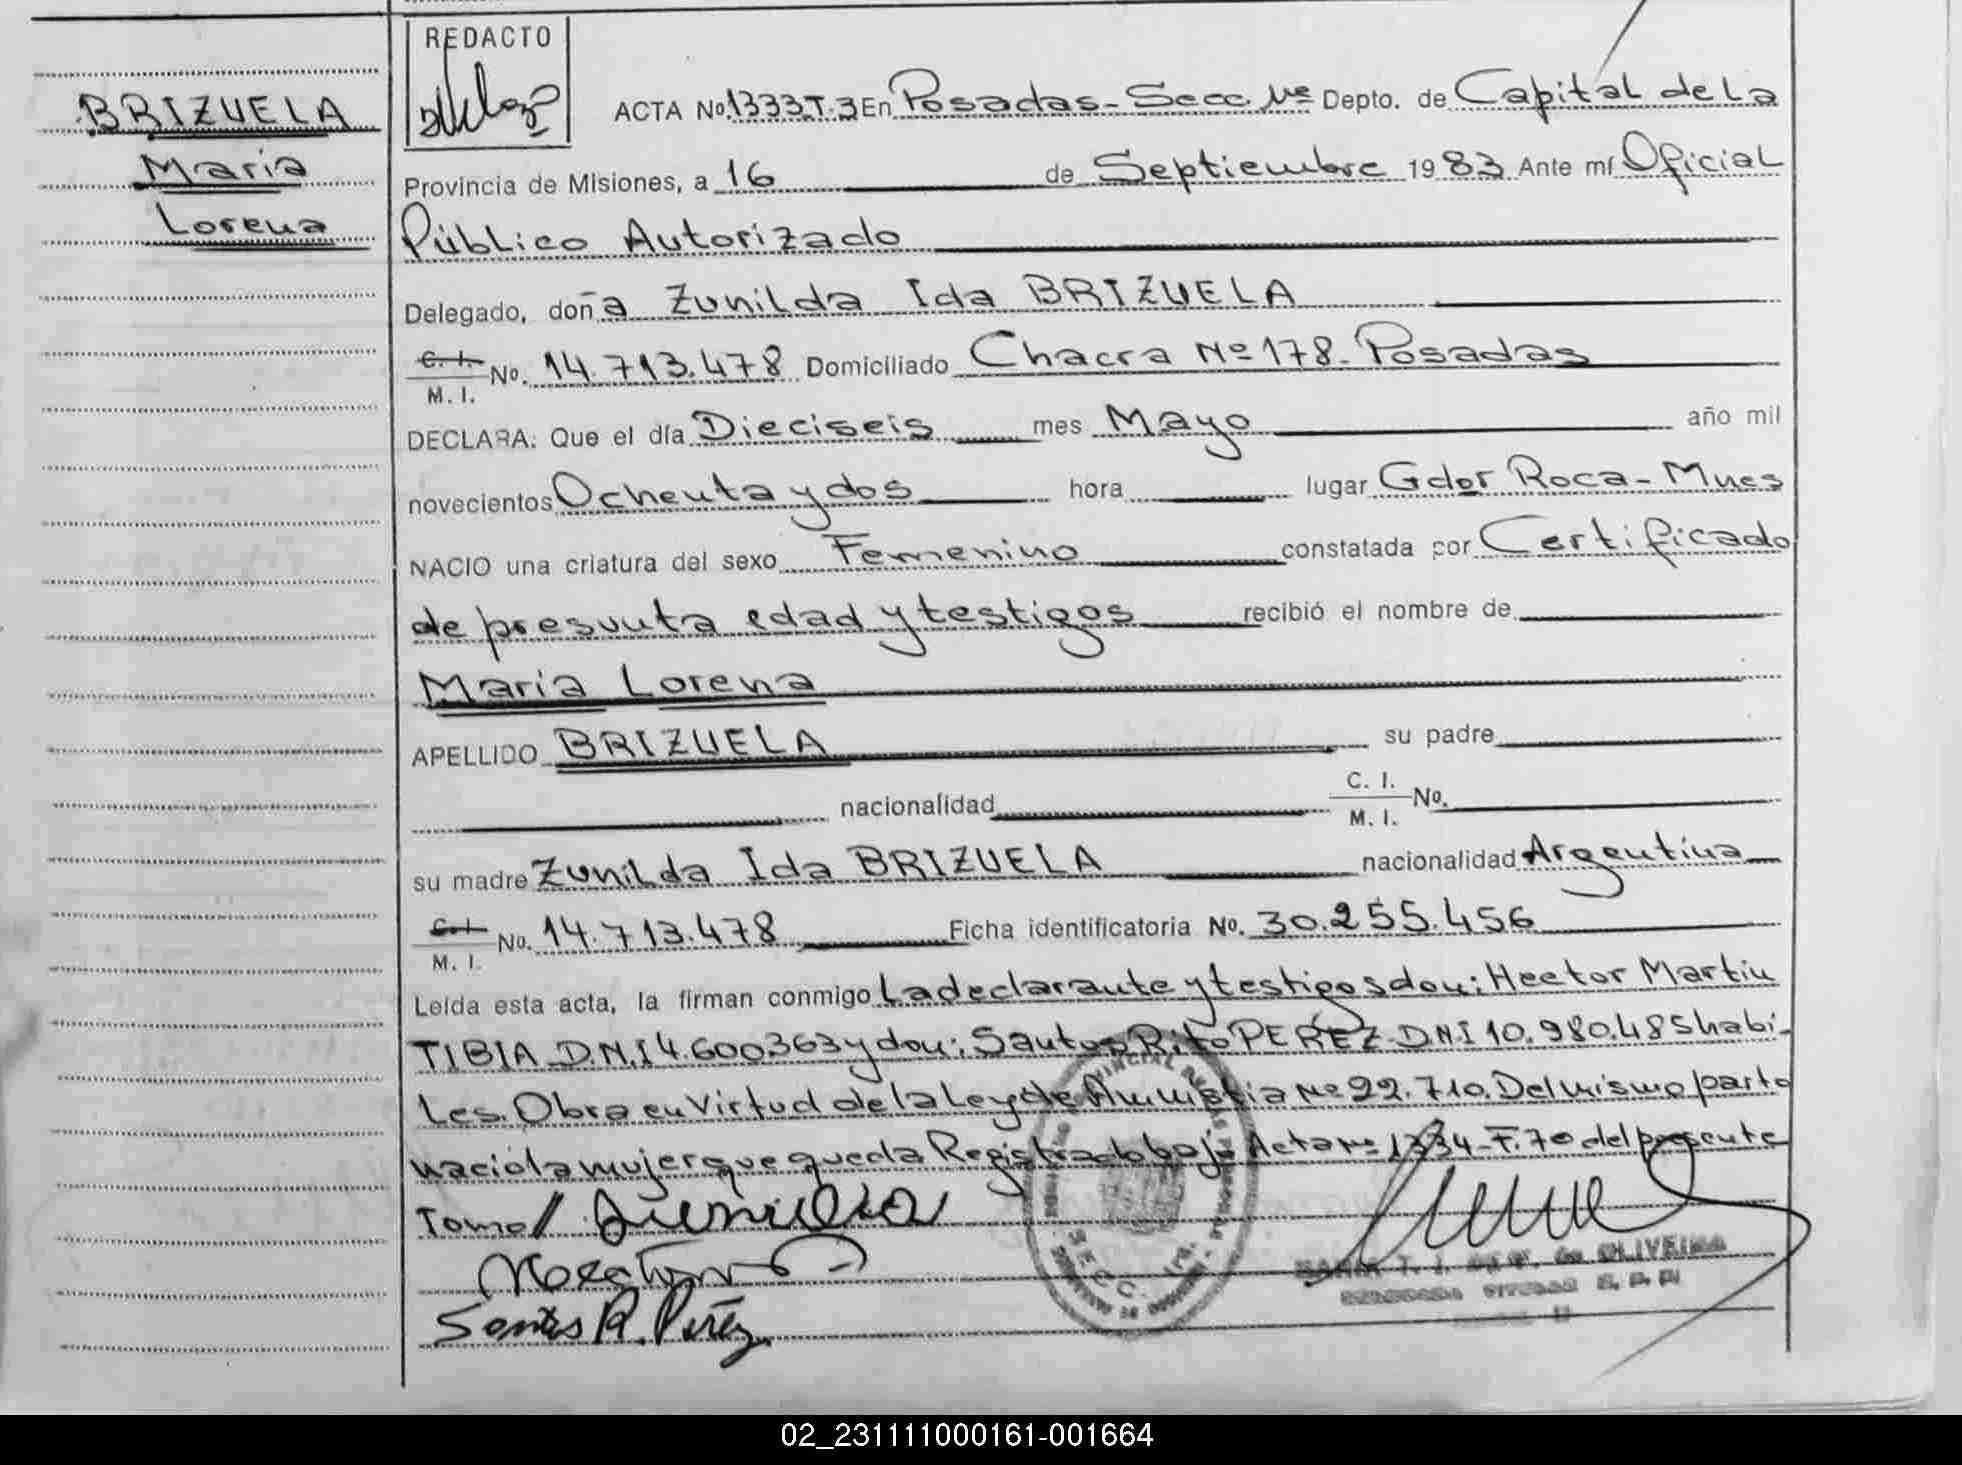 REDACTO
BRIZUELA
Maria
Lorena
ACTA No. 1333 T. 3 En Posadas - Secc. Depto. de Capital de La
Provincia de Misiones, a 16 de Septiembre 1983 Ante mí Oficial
Público Autorizado
Delegado, doña Zunilda Ida BRIZUELA
C. I. M. I. No. 14.713.478 Domiciliado Chacra Nº 178. Posadas
DECLARA: Que el día Dieciseis mes Mayo año mil
novecientos Ochenta y dos hora lugar Gdor Roca - Mnes
NACIO una criatura del sexo Femenino constatada por Certificado
de presunta edad y testigos recibió el nombre de
Maria Lorena
APELLIDO BRIZUELA su padre
nacionalidad C. I. M. I. No.
su madre Zunilda Ida BRIZUELA nacionalidad Argentina
C. I. M. I. No. 14.713.478 Ficha identificatoria No. 30.255.456
Leída esta acta, la firman conmigo La declarante y testigos don: Hector Martin
TIBIA D.N.I 4.600363 y don: Santos Rito PEREZ D.N.I 10.980.485 habi-
les. Obra en Virtud de la Ley de Amnistia Nº 22.710. Del mismo parto
nacio la mujer que queda Registrado bajo Acta nº 1334 - F. 70 del presente
Tomo
Santos R. Peréz
SECC.
OLIVEIRA
02_231111000161-001664